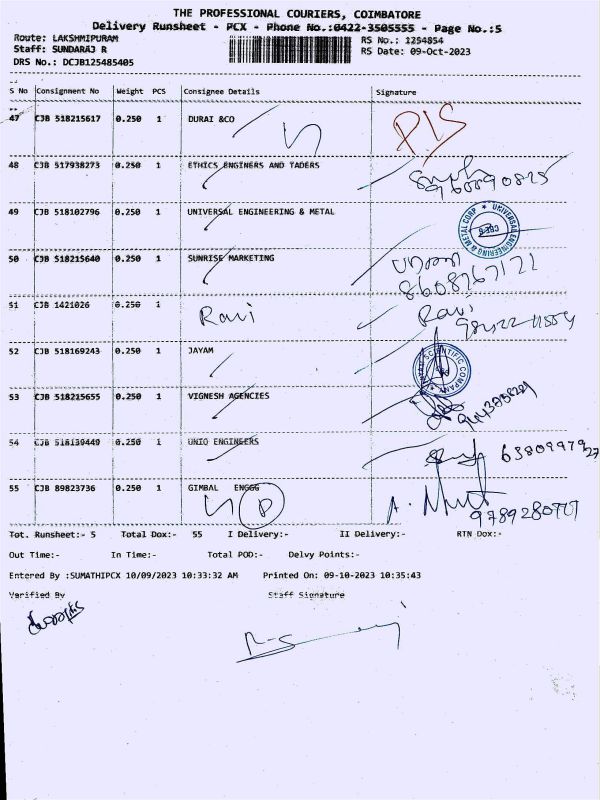 THE PROFESSIONAL COURIERS, COIMBATORE
Delivery Runsheet - PCX - Phone No.:0422-3505555 - Page No.:5
Route: LAKSHMIPURAM RS No.: 1254854
Staff: SUNDARAJ R RS Date: 09-Oct-2023
DRS No.: DCJB125485405
S No Consignment No Weight PCS Consignee Details Signature
47 CJB 518215617 0.250 1 DURAI &CO P/S
48 CJB 517938273 0.250 1 ETHICS ENGINERS AND TADERS
49 CJB 518102796 0.250 1 UNIVERSAL ENGINEERING & METAL
UNIVERSAL ENGINEERING & METAL CORP. ★ CBE-6
50 CJB 518215640 0.250 1 SUNRISE MARKETING
8608767172
51 CJB 1421026 0.250 1 Ravi Ravi
52 CJB 518169243 0.250 1 JAYAM
SCIENTIFIC COMPANY
53 CJB 518215655 0.250 1 VIGNESH AGENCIES
54 CJB 518139440 0.250 1 UNIQ ENGINEERS
55 CJB 89823736 0.250 1 GIMBAL ENGGG
Tot. Runsheet:- 5 Total Dox:- 55 I Delivery:- II Delivery:- RTN Dox:-
Out Time:- In Time:- Total POD:- Delvy Points:-
Entered By :SUMATHIPCX 10/09/2023 10:33:32 AM Printed On: 09-10-2023 10:35:43
Varified By Staff Signature